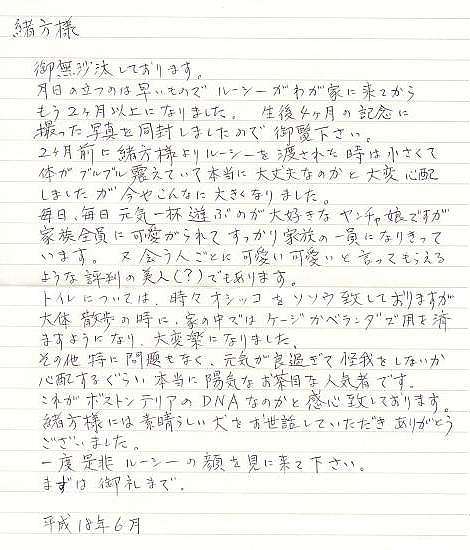 緒方様
御無沙汰しております。
月日の立つのは早いもので ルーシーがわが家に来てから
もう2ヶ月以上になりました。 生後4ヶ月の記念に
撮った写真を同封しましたので御覧下さい。
2ヶ月前に緒方様よりルーシーを渡された時は小さくて
体がブルブル震えていて本当に大丈夫なのかと大変心配
しましたが今やこんなに大きくなりました。
毎日、毎日元気一杯遊ぶのが大好きなヤンチャ娘ですが
家族全員に可愛がられてすっかり家族の一員になりきって
います。 又会う人ごとに可愛い可愛いと言ってもらえる
ような評判の美人(?)でもあります。
トイレについては、時々オシッコをソソウ致しておりますが
大体散歩の時に、家の中ではケージかベランダで用を済
ますようになり、大変楽になりました。
その他特に問題もなく、元気が良過ぎて怪我をしないか
心配するぐらい本当に陽気なお茶目な人気者です。
これがボストンテリアのDNAなのかと感心致しております。
緒方様には素晴らしい犬をお世話していただきありがとう
ございました。
一度是非ルーシーの顔を見に来て下さい。
まずは御礼まで。
平成18年6月